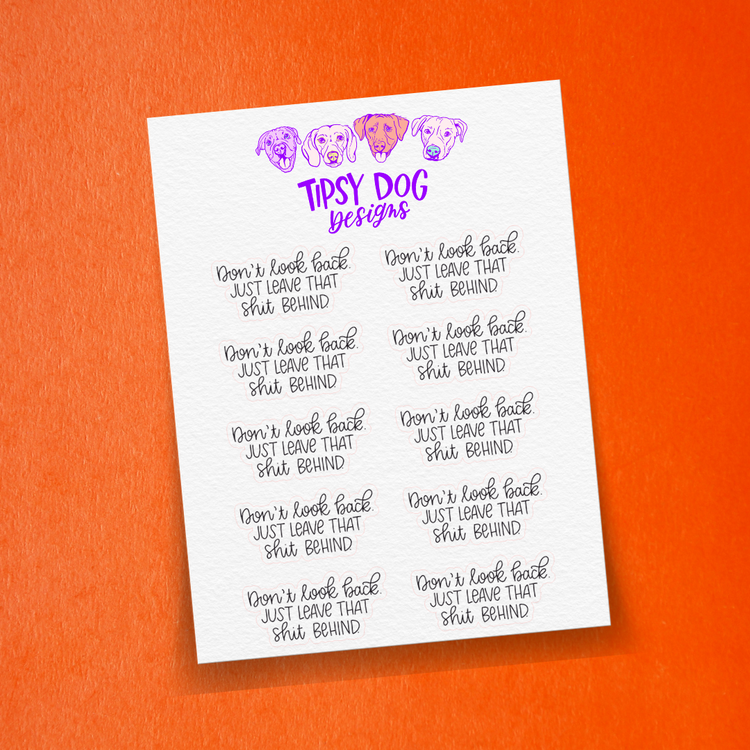 TIPSY DOG
Designs
Don't look back.
JUST LEAVE THAT
shit BEHIND
Don't look back.
JUST LEAVE THAT
shit BEHIND
Don't look back.
JUST LEAVE THAT
shit BEHIND
Don't look back.
JUST LEAVE THAT
shit BEHIND
Don't look back.
JUST LEAVE THAT
shit BEHIND
Don't look back.
JUST LEAVE THAT
shit BEHIND
Don't look back.
JUST LEAVE THAT
shit BEHIND
Don't look back.
JUST LEAVE THAT
shit BEHIND
Don't look back.
JUST LEAVE THAT
shit BEHIND
Don't look back.
JUST LEAVE THAT
shit BEHIND